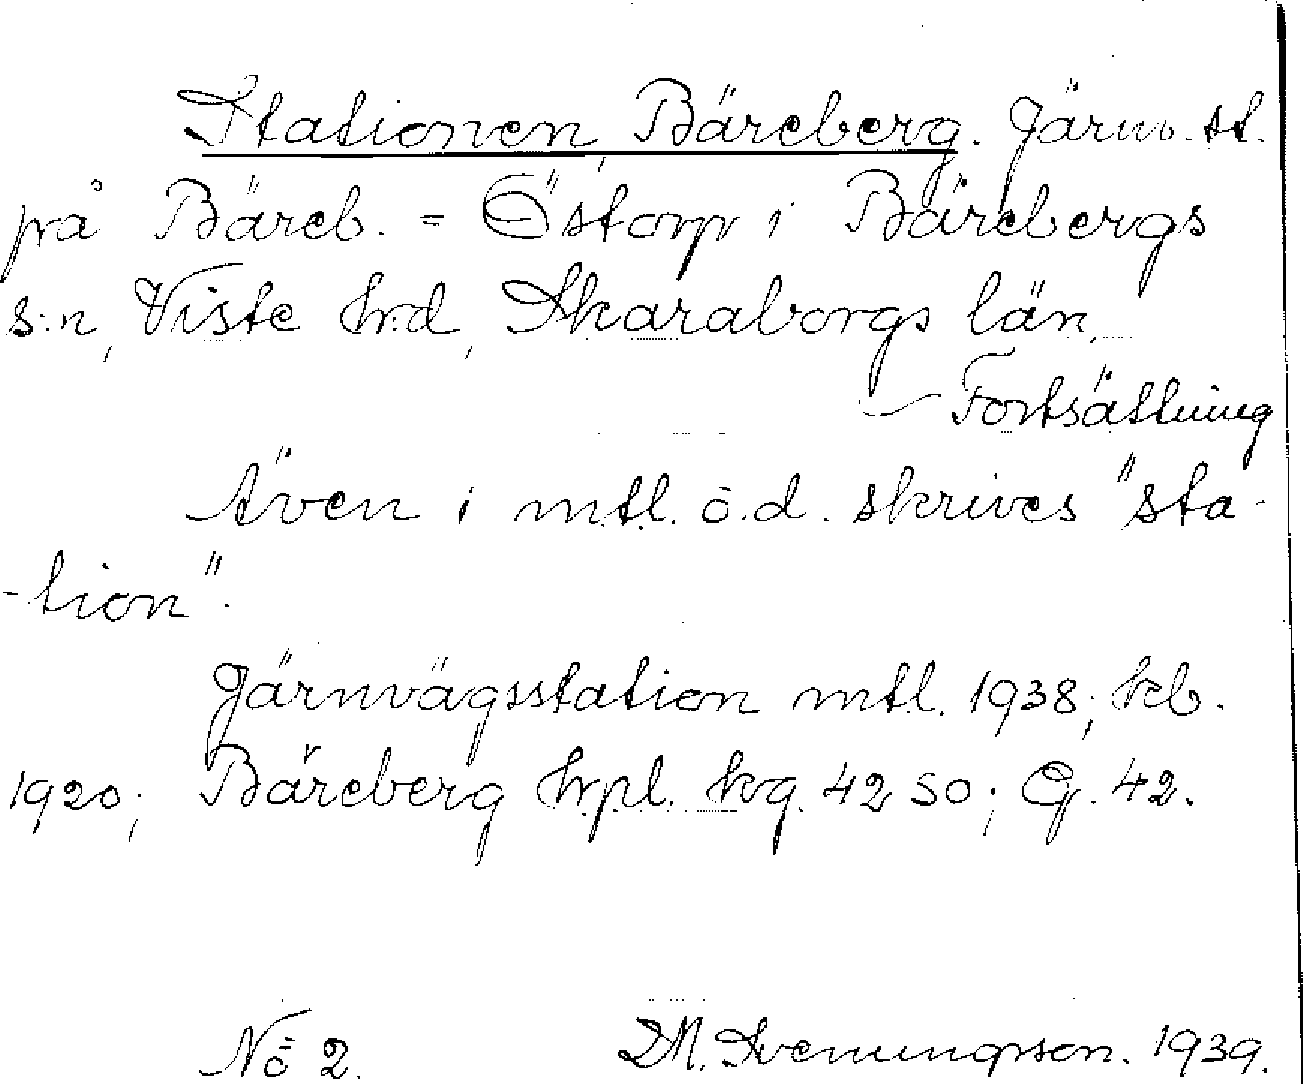 Stationen Bäreberg. Järnv.st.
på Bäreb. = Östorp i Bärebergs
s:n, Viste hrd, Skaraborgs län.
Fortsättning
Även i mtl. o.d. skrives "sta-
-tion".
Järnvägsstation mtl. 1938; kb.
1920; Bäreberg hpl. kg. 42 SO; G. 42.
No 2. M. Svenungsson. 1939.